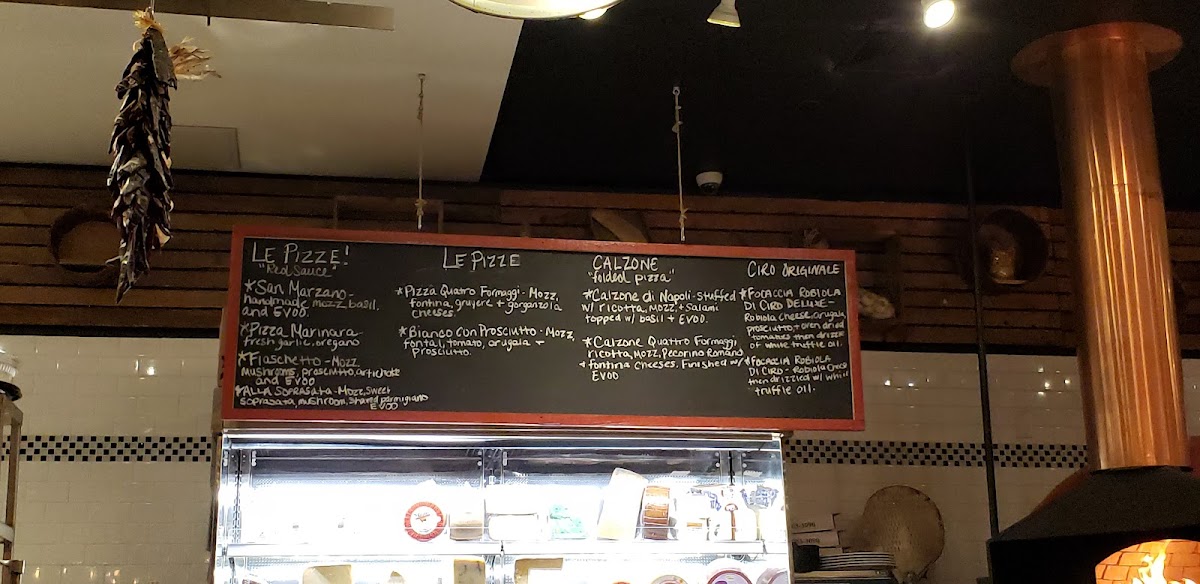 LE PIZZE!
"Red Sauce"
*San Marzano-
handmade mozz, basil,
and EVOO.
*Pizza Marinara-
fresh garlic, oregano
*Fiaschetto-Mozz
mushrooms, prosciutto, artichoke
and EVOO
*ALLA SOPRASATA-Mozz, Sweet
Soprasata, mushroom, shaved parmigiano
EVOO
LE PIZZE
*Pizza Quatro Formaggi-Mozz,
fontina, gruyere + gorgonzola
cheeses.
*Bianco Con Prosciutto-Mozz,
fontal, tomato, arugala +
prosciutto.
CALZONE
"folded pizza"
*Calzone di Napoli-stuffed
w/ ricotta, mozz, + Salami
topped w/ basil + EVOO.
*Calzone Quattro Formaggi,
ricotta, Mozz, Pecorino Romano
+ fontina cheeses. Finished w/
EVOO
CIRO ORIGINALE
*FOCACCIA ROBIOLA
DI CIRO DELUXE-
Robiola cheese, arugala,
prosciutto, + oven dried
tomatoes then drizzle
of white truffle oil.
*FOCACCIA ROBIOLA
DI CIRO-Robiola
then drizzled w/ white
truffle oil.